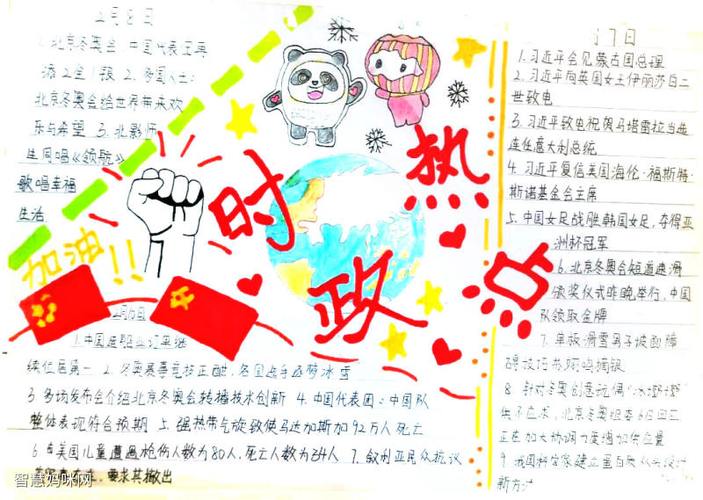 2月8日
1.北京冬奥会 中国代表王冀
2.多国人士:
北京冬奥会给世界带来欢
乐与希望 3.北影师
生同唱《领航》
歌唱幸福
生活
加油!!
时政热点
月7日
1.习近平会见蒙古国总理
2.习近平向英国女王伊丽莎白二
世致电
3.习近平致电祝贺马塔雷拉当选
连任意大利总统
4.习近平复信美国海伦·福斯特·
斯诺基金会主席
5.中国女足战胜韩国女足,夺得亚
洲杯冠军
6.北京冬奥会短道速滑
颁奖仪式昨晚举行,中国
队领取金牌
7.单板滑雪男子坡面障
碍技巧苏翊鸣摘银
8.针对冬奥创意玩偶“冰墩墩”
供不应求,北京冬奥组委6日回应
正在加大协调力度增加供应量
9.我国科学家建立蛋白质从头设计
新方法
1.中国造船业订单继
续位居第一 2.冬奥赛事竞技正酣,各国选手逐梦冰雪
3.多场发布会介绍北京冬奥会转播技术创新 4.中国代表团:中国队
整体表现符合预期 5.强热带气旋致使马达加斯加92万人死亡
6.美国儿童遭遇枪伤人数为80人,死亡人数为24人 7.叙利亚民众抗议
要求其撤出
智慧妈咪网